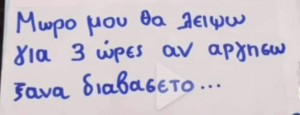 Μωρο μου θα λειψω
για 3 ώρες αν αργησω
ξανα διαβασετο...